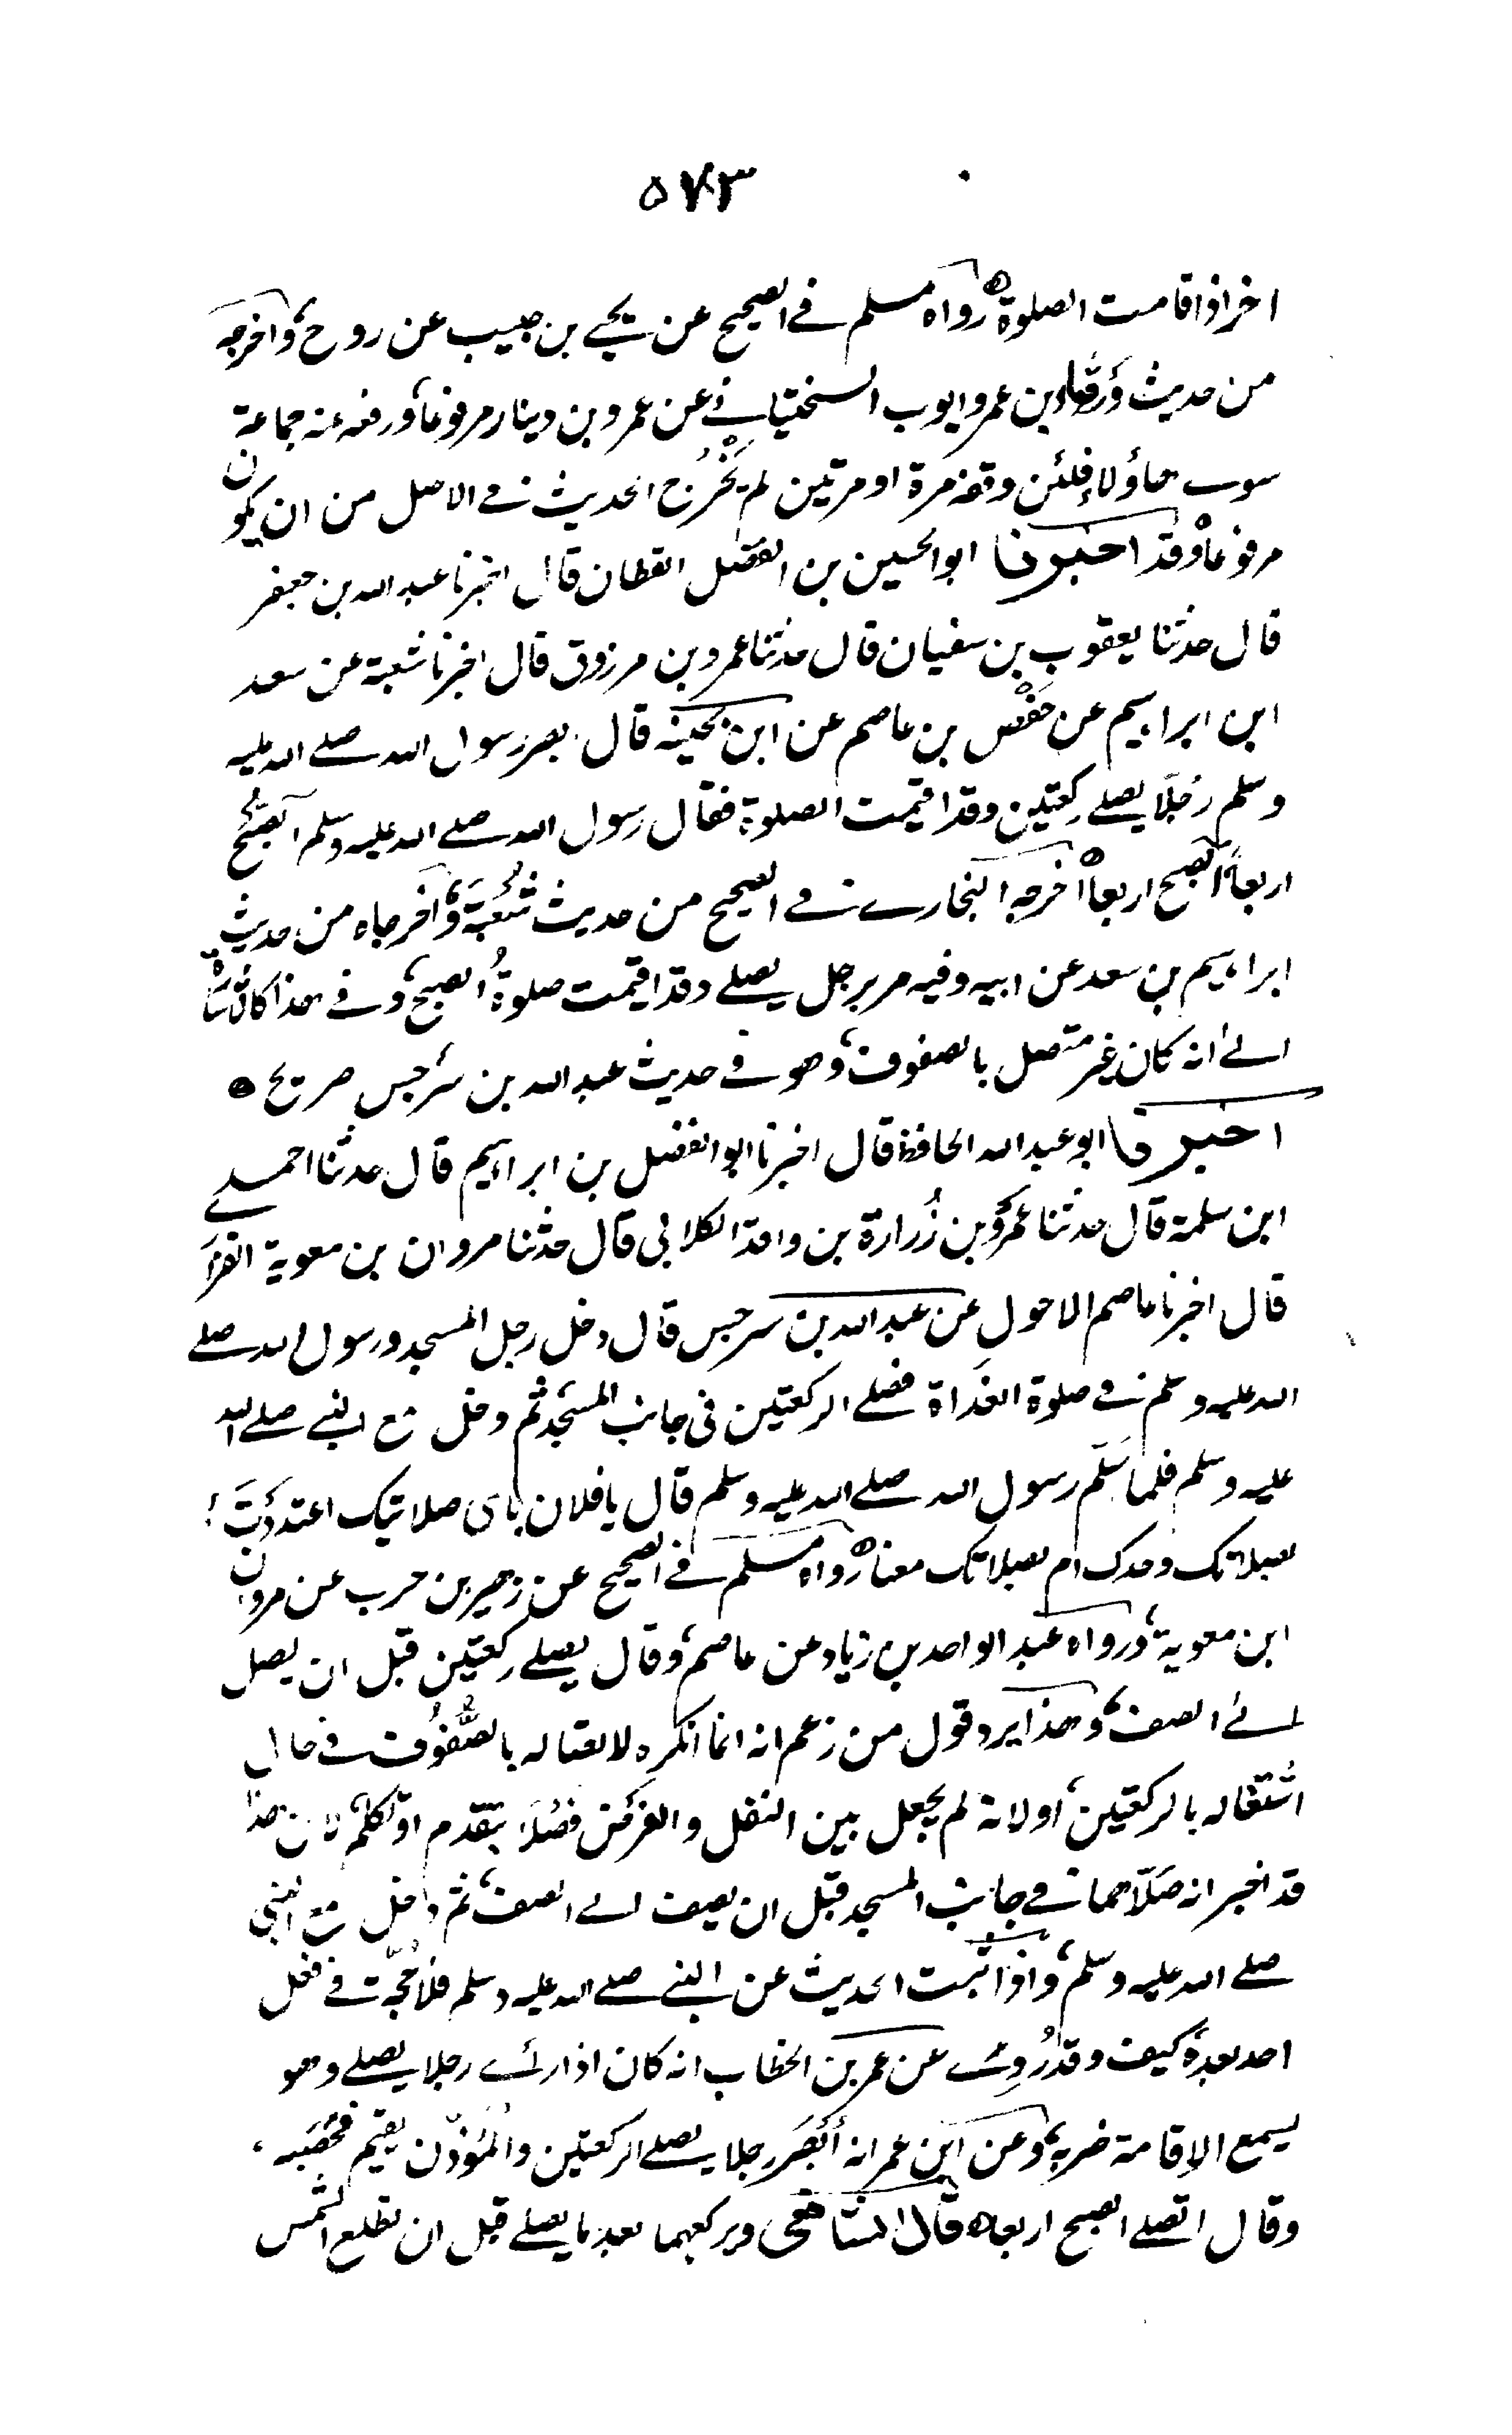 ٥٧٣
اخر اذا قامت الصلوة ه رواه مسلم في الصحيح عن يحيى بن حبيب عن روح، واخرجه
من حديث ورقاء بن عمر وايوب السختياني عن عمرو بن دينار مرفوعا، ورفعه عنه جماعة
سوى هاؤلاء فلئن وقفه مرة او مرتين لم يَخرُج الحديث في الاصل من ان يكون
مرفوعا ه وقد اخبرنا ابو الحسين بن الفضل القطان قال اخبرنا عبد الله بن جعفر
قال حدثنا يعقوب بن سفيان قال حدثنا عمرو بن مرزوق قال اخبرنا شعبة عن سعد
ابن ابراهيم عن حفص بن عاصم عن ابن بحينة قال بصر رسول الله صلى الله عليه
وسلم رجلا يصلي ركعتين وقد اقيمت الصلوة فقال رسول الله صلى الله عليه وسلم آلصبح
اربعاً آلصبح اربعا ه اخرجه البخاري في الصحيح من حديث شُعبَة، واخرجاه من حديث
ابراهيم بن سعد عن ابيه وفيه مر برجل يصلي وقد اقيمت صلوةُ الصبح، وفي هذا
الى انه كان غير متصل بالصفوف، وهو في حديث عبد الله بن سرجس صريح ه
اخبرنا ابو عبد الله الحافظ قال اخبرنا ابو الفضل بن ابراهيم قال حدثنا احمد
ابن سلمة قال حدثنا عمرو بن زُرارة بن واقد الكلابي قال حدثنا مروان بن معوية الفزاري
قال اخبرنا عاصم الاحول عن عبد الله بن سرجس قال دخل رجل المسجد ورسول الله صلى
الله عليه وسلم في صلوة الغداة فصلى الركعتين في جانب المسجد ثم دخل مع النبي صلى الله
عليه وسلم فلما سلّم رسول الله صلى الله عليه وسلم قال يا فلان باى صلاتيك اعتددتَ أ
بصلاتك وحدك ام بصلاتك معنا ه رواه مسلم في الصحيح عن زهير بن حرب عن مروان
ابن معوية، ورواه عبد الواحد بن زياد عن عاصم، وقال يصلي ركعتين قبل ان يصل
الى الصف، وهذا يرد قول من زعم انه انما انكره لاتصاله بالصُّفوُف في حال
اشتغاله بالركعتين، او لانه لم يجعل بين النفل والفرض فصلا بتقدم او تكلم، لان هذا
قد اخبر انه صَلّاهما في جانب المسجد قبل ان يصف الى الصف، ثم دخل مع النبي
صلى الله عليه وسلم، واذا ثبت الحديث عن النبي صلى الله عليه وسلم فلا حُجّة في فعل
احد بعده كيف وقد رُوِي عن عمر بن الخطاب انه كان اذا راى رجلا يصلي وهو
يسمع الاقامة ضربه، وعن ابن عمر انه أبْصَر رجلا يصلي الركعتين والمُؤذّن يقيم فحَصَبه،
وقال اتصلي الصبح اربعا ه قال الشافعي ويركعهما بعد ما يصلي قبل ان تطلع الشمس